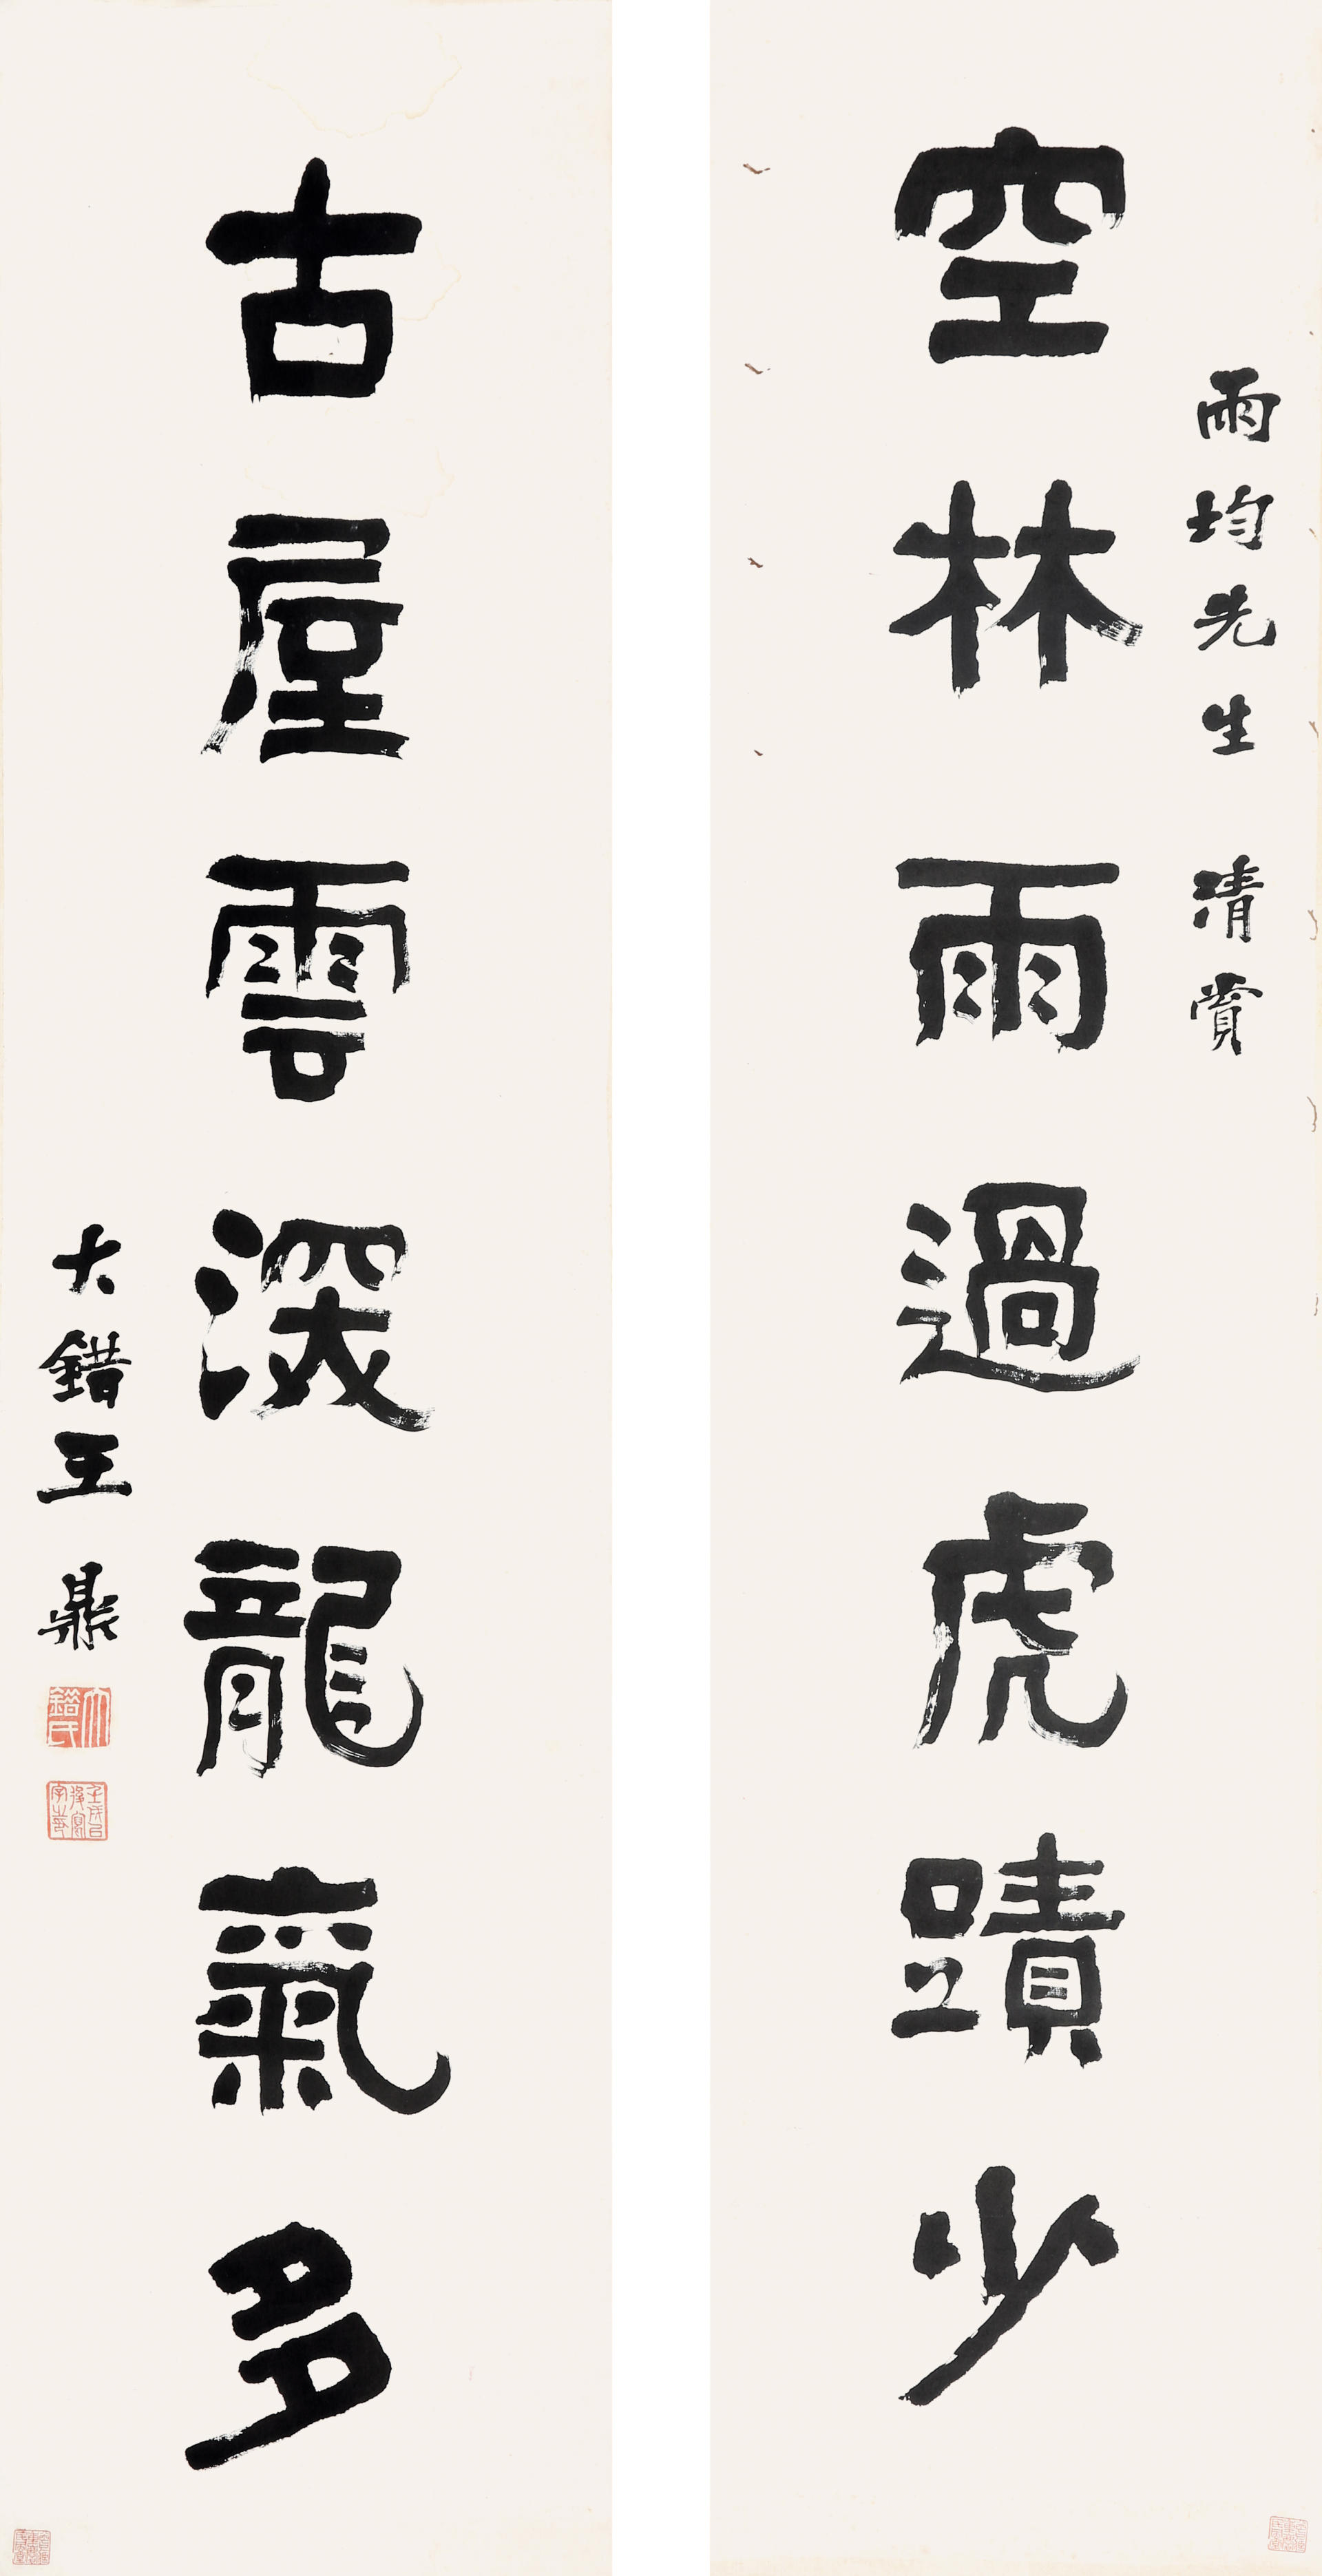 雨均先生 清賞
空林雨過虎蹟少
古屋雲深龍氣多
大錯王鼎
大錯氏